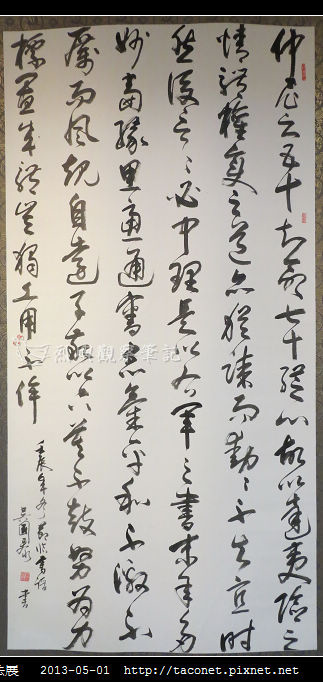 仲尼云五十知命七十從心故以達夷險之
情體權變之道亦猶謀而動〻不失宜時
然後言〻必中理是以右軍之書末年多
妙當緣思慮通審志氣平和不激不
厲而風規自遠子敬以下莫不鼓努為力
標置成體豈獨工用不侔
壬辰年冬節臨書譜
吳國豪 書
觀察筆記
法展 2013-05-01 http://taconet.pixnet.net